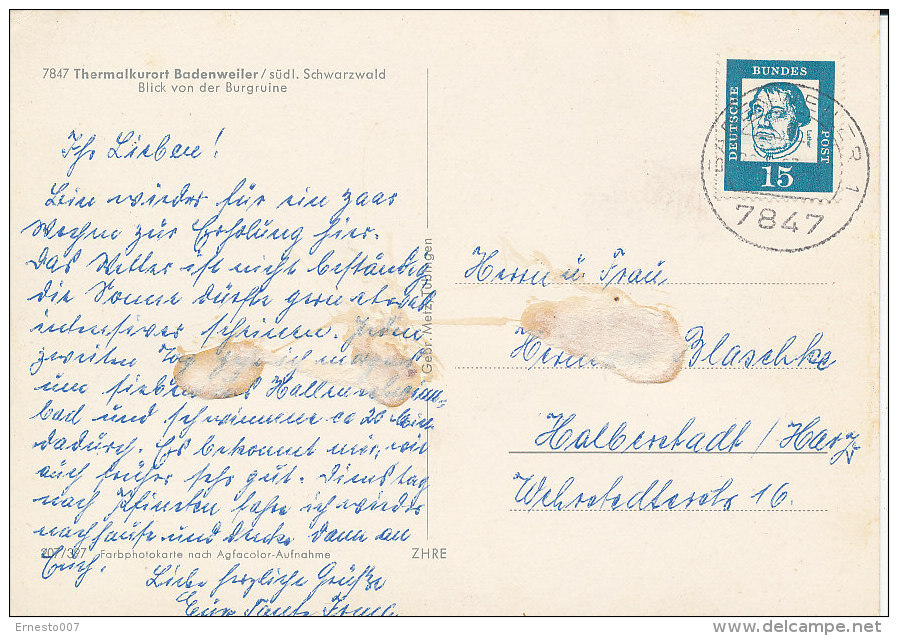 7847 Thermalkurort Badenweiler / südl. Schwarzwald
Blick von der Burgruine
Ihr Lieben!
Bin wieder für ein paar
Wochen zur Erholung hier.
Das Wetter ist nicht beständig
die Sonne dürfte gern etwas
intensiver scheinen. Jeden
zweiten Tag ich morgens
um sieben Hallenschwimm-
bad und schwimme ca 20 Min
dadurch. Es bekommt mir, wie
auch früher sehr gut. Dienstag
nach Pfingsten fahre ich wieder
nachhause und denke dann an
Euch.
Liebe herzliche Grüße
Eure Tante
207/397 Farbphotokarte nach Agfacolor-Aufnahme ZHRE
Gebr. Metz, Tübingen
DEUTSCHE BUNDES POST
15
BADENWEILER 1
7847
Herrn u. Frau
Blaschke
Halberstadt / Harz
Wehrstedterstr 16.
Ernesto007
delcampe.net